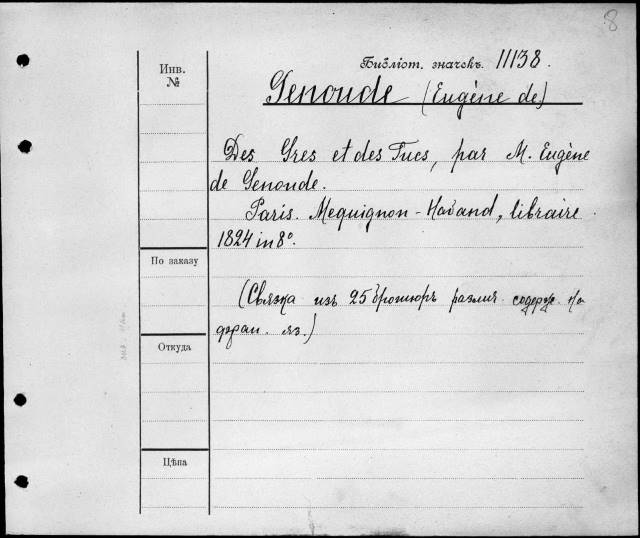 8
Библіот. значекъ. 11138.
Инв.
№
Genoude (Eugène de)
Des Gres et des Tucs, par M. Eugène
de Genoude.
Paris. Mequignon-Havand, libraire
1824 in 8°.
По заказу
(Связка изъ 25 брошюръ различ. содерж. на
франц. яз.)
Откуда
Цѣна